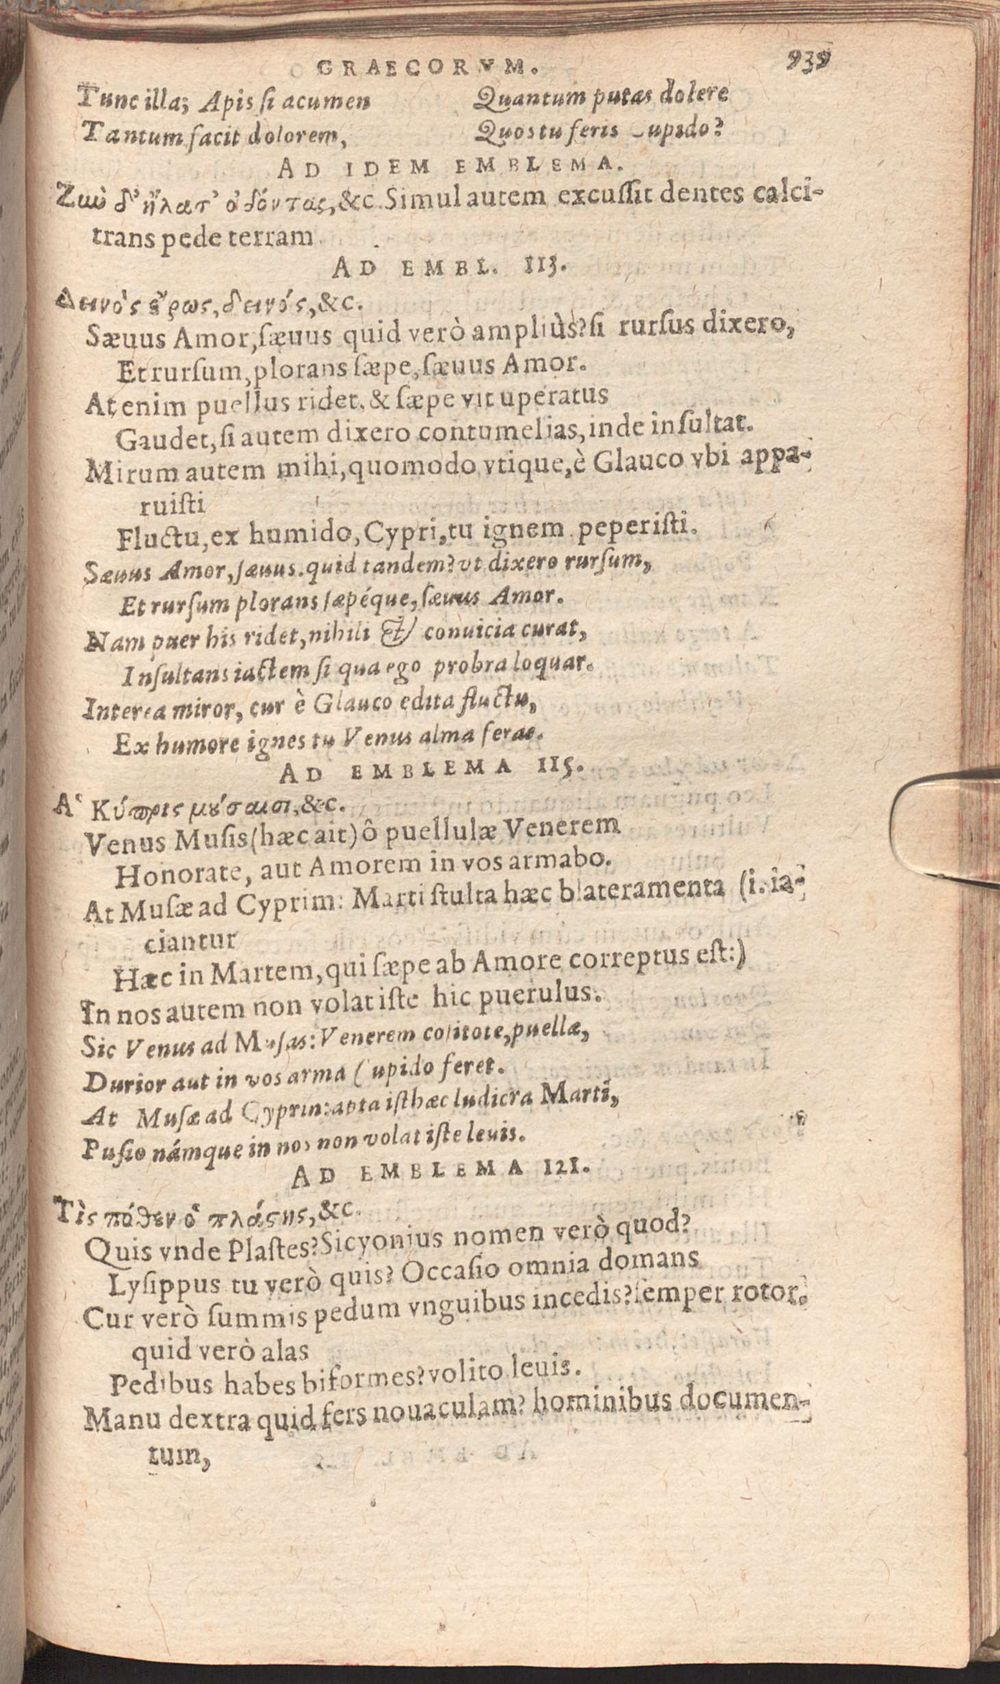 GRAECORVM. 939
Tunc illa; Apis si acumen
Tantum facit dolorem,
Quantum putas dolere
Quos tu feris Cupido?
AD IDEM EMBLEMA.
Σιωὺ δ' ἤλατ' ὀδόντας, &c. Simul autem excussit dentes calci-
trans pede terram
AD EMBL. 113.
Δεινὸς ἔρως, δεινός, &c.
Sæuus Amor, sæuus quid verò ampliùs? si rursus dixero,
Et rursum, plorans sæpe, sæuus Amor.
At enim puellus ridet, & sæpe vituperatus
Gaudet, si autem dixero contumelias, inde insultat.
Mirum autem mihi, quomodo vtique, è Glauco vbi appa-
ruisti
Fluctu, ex humido, Cypri, tu ignem peperisti.
Sæuus Amor, sæuus. quid tandem? vt dixero rursum,
Et rursum plorans sæpéque, sæuus Amor.
Nam puer his ridet, nihili & conuicia curat,
Insultans iactem si qua ego probra loquar.
Interea miror, cur è Glauco edita fluctu,
Ex humore ignes tu Venus alma feras.
AD EMBLEMA 115.
Ἁ Κύπρις μούσαισι, &c.
Venus Musis (hæc ait) ô puellulæ Venerem
Honorate, aut Amorem in vos armabo.
At Musæ ad Cyprim: Marti stulta hæc blateramenta (i. ia-
ciantur
Hæc in Martem, qui sæpe ab Amore correptus est:)
In nos autem non volat iste hic puerulus.
Sic Venus ad Musas: Venerem cositote, puellæ,
Durior aut in vos arma Cupido feret.
At Musæ ad Cyprin: apta isthæc ludicra Marti,
Pusio námque in nos non volat iste leuis.
AD EMBLEMA 121.
Τὶς πόθεν ὁ πλάστης, &c.
Quis vnde Plastes? Sicyonius nomen verò quod?
Lysippus tu verò quis? Occasio omnia domans
Cur verò summis pedum vnguibus incedis? semper rotor.
quid verò alas
Pedibus habes biformes? volito leuis.
Manu dextra quid fers nouaculam? hominibus documen-
tum,